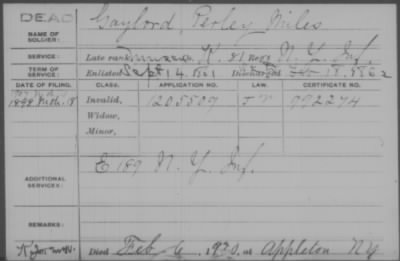 DEAD
NAME OF SOLDIER: Gaylord, Perley Miles
SERVICE: Late rank, K. 81 Regt. N. Y. Inf.
TERM OF SERVICE: Enlisted Sept 14, 1861 Discharged 18, 1862
DATE OF FILING. CLASS. APPLICATION NO. LAW. CERTIFICATE NO.
1898 Mch. 18 Invalid, 1205509 992274
Widow,
Minor,
ADDITIONAL SERVICES: E 189 N. Y. Inf.
REMARKS:
Died Feb 6, 1920, at Appleton N.Y.